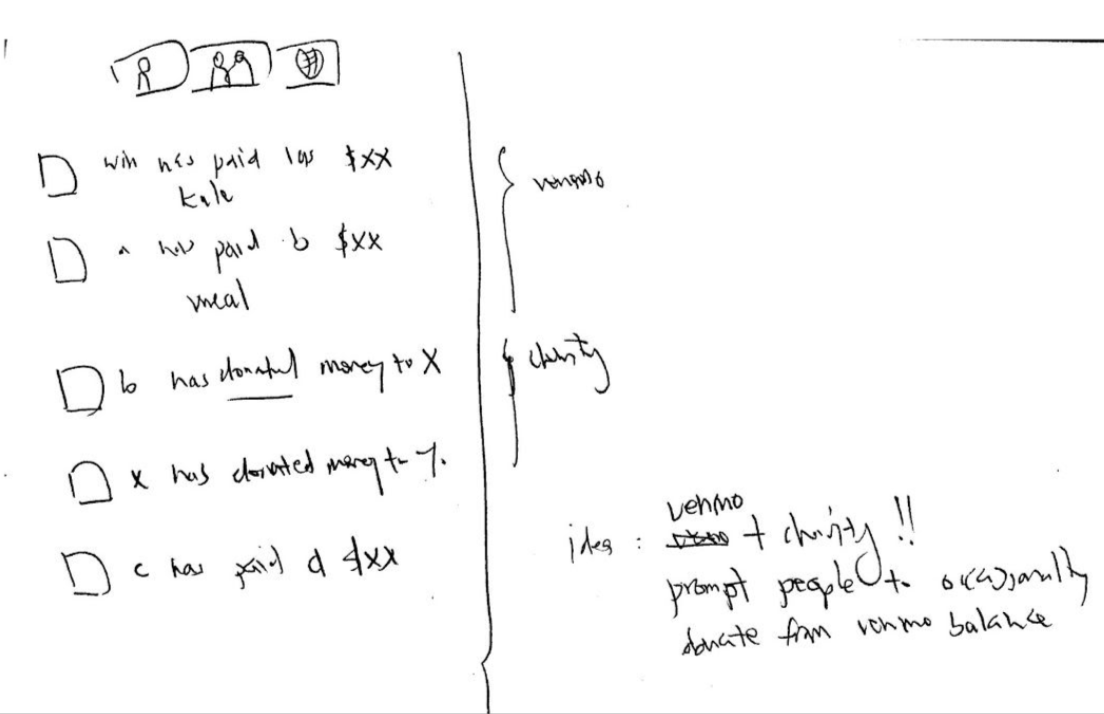 paid $xx
a has paid b $xx
meal
b has donated money to X
x has donated money to y.
c has paid d $xx
venmo
charity
idea : venmo + charity !!
prompt people to occasionally
donate from venmo balance